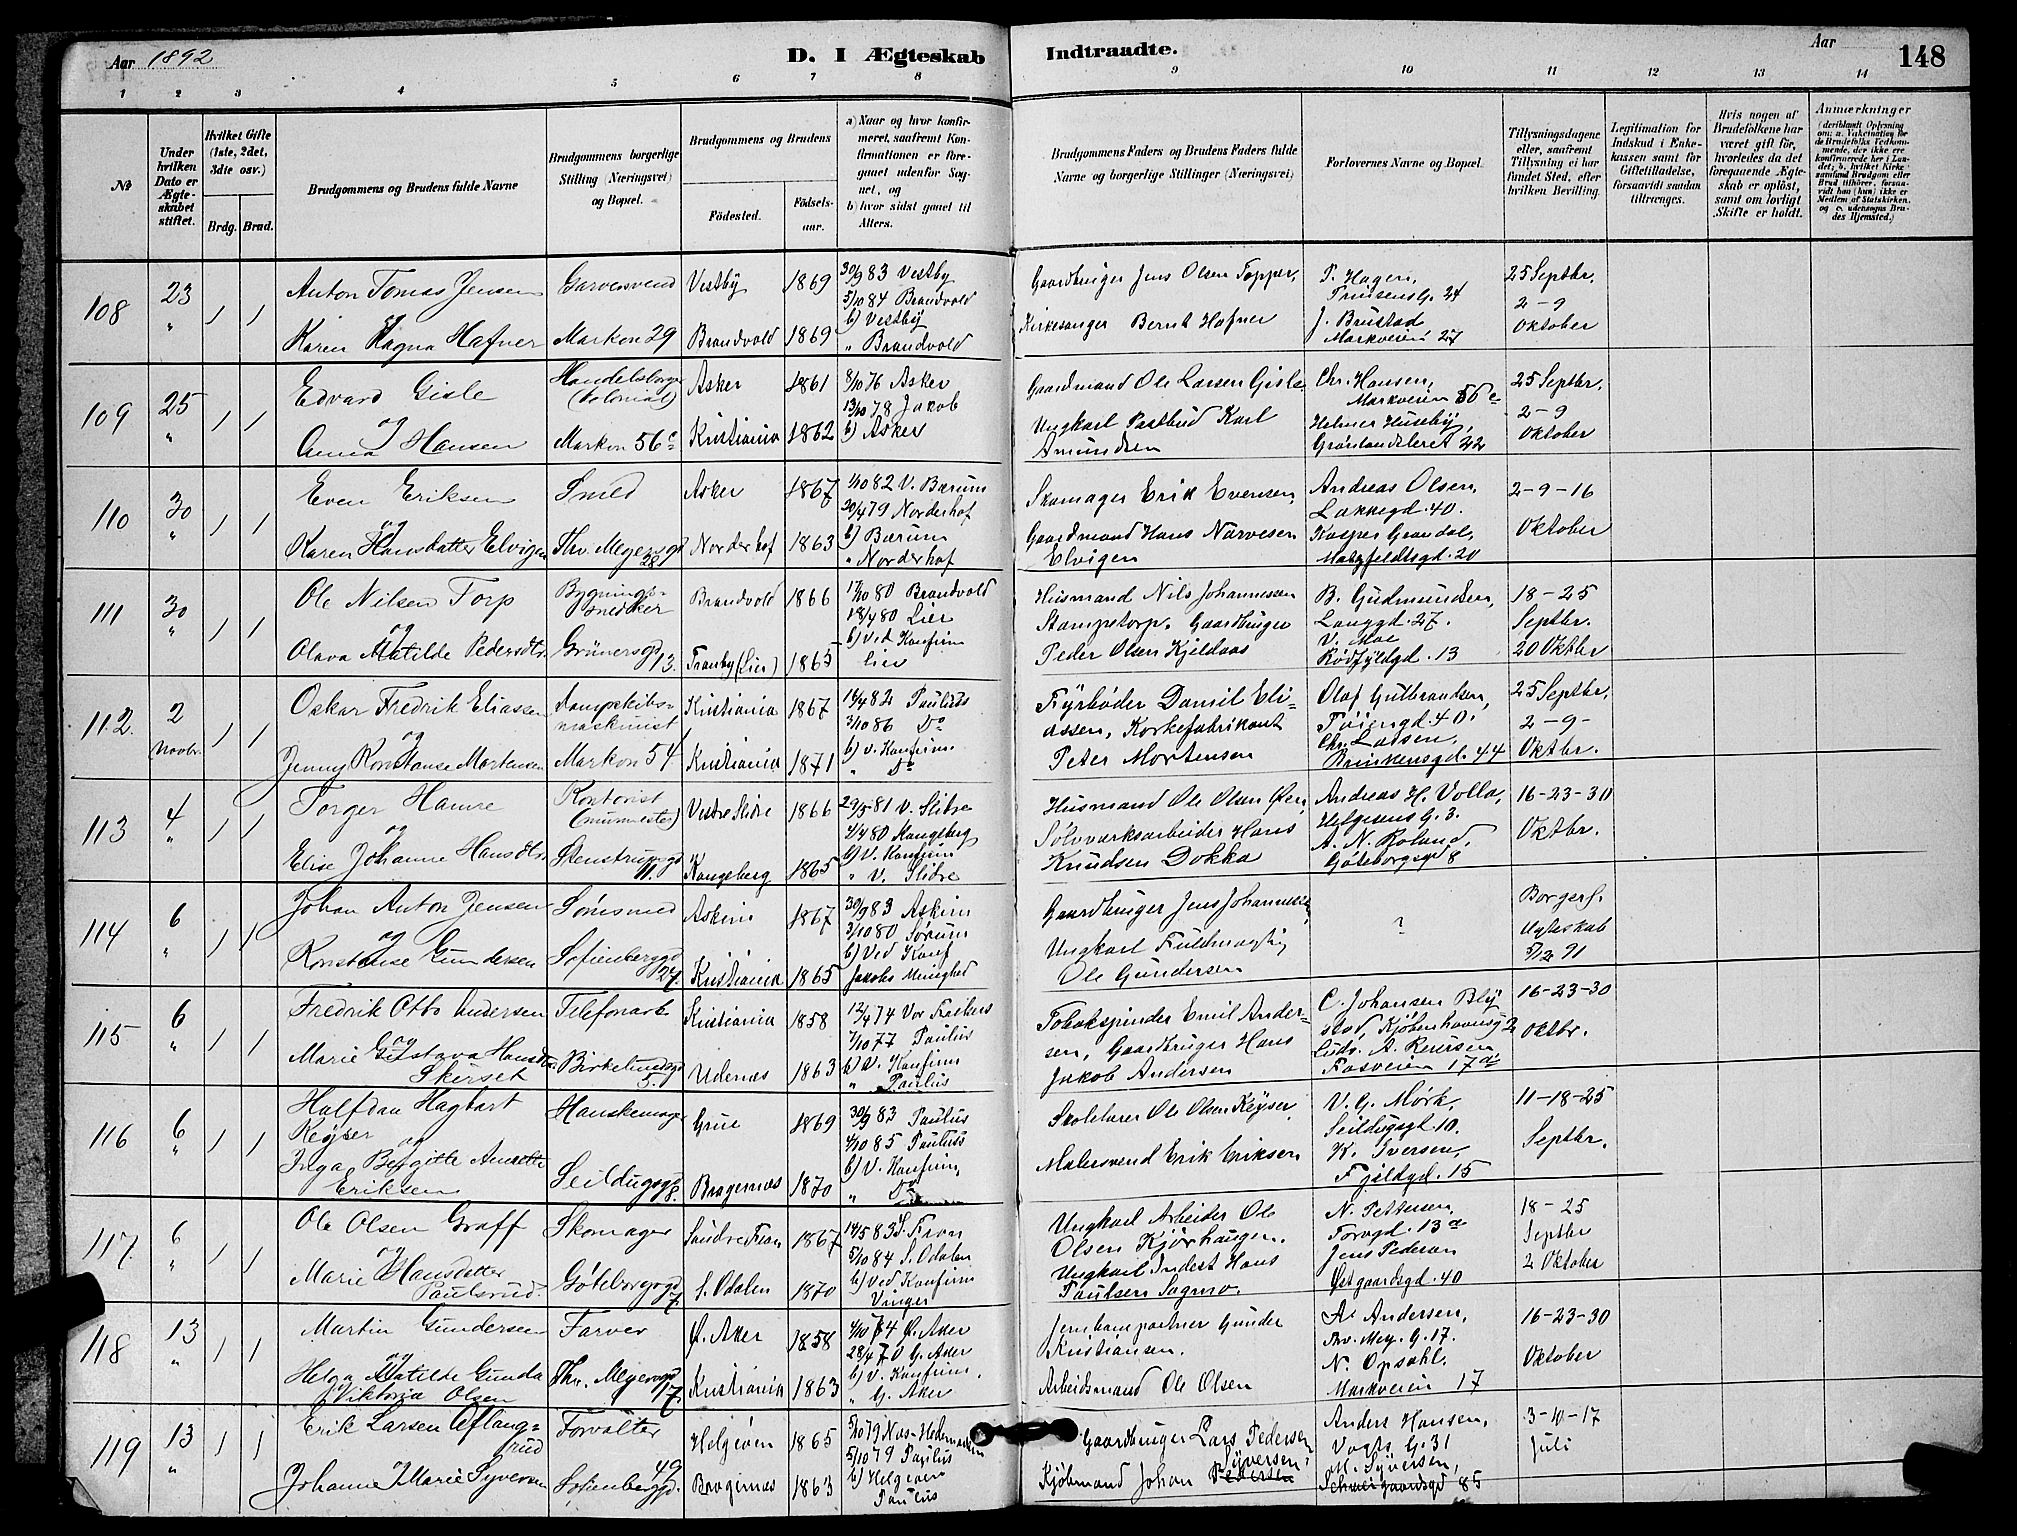 Aar 1892
D. I Ægteskab Indtraadte.
Aar
148
1 2 3 4 5 6 7 8 9 10 11 12 13 14
No
Under hvilken Dato er Ægteskabet stiftet.
Hvilket Gifte (1ste, 2det, 3die osv.)
Brdg. Brud.
Brudgommens og Brudens fulde Navne
Brudgommens borgerlige Stilling (Næringsvei) og Bopæl.
Brudgommens og Brudens
Fødested.
Fødselsaar.
a) Naar og hvor konfirmeret, saafremt Konfirmationen er foregaaet udenfor Sognet, og
b) hvor sidst gaaet til Alters.
Brudgommens Faders og Brudens Faders fulde Navne og borgerlige Stillinger (Næringsvei)
Forlovernes Navne og Bopæl.
Tillysningsdagene eller, saafremt Tillysning ei har fundet Sted, efter hvilken Bevilling.
Legitimation for Indskud i Enkekassen samt for Giftetilladelse, forsaavidt saadan tiltrænges.
Hvis nogen af Brudefolkene har været gift før, hvorledes da det foregaaende Ægteskab er opløst, samt om lovligt Skifte er holdt.
Anmærkninger
(deriblandt Oplysning om: a. Vakcination for de Brudefolks Vedkommende, der ikke ere konfirmerede her i Landet; b. hvilket Kirkesamfund Brudgom eller Brud tilhører, forsaavidt han (hun) ikke er Medlem af Statskirken, og c. udensogns Brudes Hjemsted.)
108 23 " 1 1
Anton Tomas Jensen
og
Karen Ragna Hafner
Garversvend
Markvn 29
Vestby 1869
Brandvold 1869
30/9 83 Vestby
5/10 84 Brandvold
b) Vestby
" Brandvold
Gaardbruger Jens Olsen Topper,
Kirkesanger Bernt Hafner
P. Hagen,
J. Brustad
Markveien 27
25 Septbr.
2-9
Oktober
109 25 " 1 1
Edvard Gisle
og
Anna Hansen
Markvn 56c
Asker 1861
Kristiania 1862
8/10 76 Asker
13/10 78 Jakob
b) Asker
Gaardmand Ole Larsen Gisle
Ungkarl Postbud Karl
Amundsen
Chr. Hansen,
Markveien 56c
Helmer Huseby,
Grønlandsleret 22
25 Septbr.
2-9
Oktober
110 30 " 1 1
Even Eriksen
og
Karen Hansdatter Elvigen
Smed
Thv. Meyersgd 28
Asker 1867
Norderhof 1863
1/10 82 V. Bærum
30/4 79 Norderhof
b) Bærum
" Norderhof
Skomager Erik Evensen,
Gaardmand Hans Narvesen
Elvigen
Andreas Olsen,
Lakkegd. 40.
Kasper Grandal,
2-9-16
Oktober
111 30 " 1 1
Ole Nilsen Torp
og
Olava Matilde Pedersdtr.
Bygningssnedker
Grünersgd 13.
Brandvold 1866
Tranby (Lier) 1865
17/10 80 Brandvold
18/4 80 Lier
b) Ved Konfirm
Lier
Husmand Nils Johannesen
Stampetorp. Gaardbruger
Peder Olsen Kjeldaas
B. Gudmundsen,
Langgd. 27.
V. Moe
Rødfyldgd. 13
18-25
Septbr.
20 Oktbr
112. 2 Novbr. 1 1
Oskar Fredrik Eliassen
og
Jenny Konstanse Mortensen
Dampskibsmaskinist
Markvn 54
Kristiania 1867
Kristiania 1871
16/4 82 Paulus
3/10 86 Do
b) v. Konfirm.
" Do
Fyrbøder Daniel Eliassen, Korkefabrikant
Peter Mortensen
Olaf Gulbrandsen,
Tøiengd. 40.
Chr. Larsen,
Brinkensgd. 44
25 Septbr.
2-9-
Oktbr.
113 4 " 1 1
Torger Hamre
og
Elise Johanne Hansdtr.
Kontorist
(murmester)
Stenstrupsgd 11.
Vestre Slidre 1866
Kongsberg 1865
29/5 81 V. Slidre
4/4 80 Kongsberg
b) V. Konfirm
" V. Slidre
Husmand Ole Olsen Øen,
Sølvværksarbeider Hans
Knudsen Dokka
Andreas H. Volla,
Helgesens G. 3.
A. N. Roland,
Göteborgsgd 8
16-23-30
Oktbr.
114 6 " 1 1
Johan Anton Jensen
og
Konstanse Gundersen
Sofienberggd
Askim 1867
Kristiania 1865
30/9 83 Askim
3/10 80 Sørum
b) Ved Konf
Jakobs Menighed
Gaardbruger Jens Johannesen,
Ungkarl Fuldmægtig
Ole Gundersen
?
Borgerl.
Ægteskab
5/12 91
115 6 " 1 1
Fredrik Otto Andersen
og
Marie Gustava Hansdtr.
Skerset
Telefonarb
Birkelundsgd 5.
Kristiania 1858
Udenes 1863
12/4 74 Vor Frelsers
7/10 77 Paulus
b) V. Konfirm
" Paulus
Tobakspinder Emil Andersen, Gaardbruger Hans
Jakob Andersen
C. Johansen Blystad, Kjøbenhavnsg 2
Ludv. A. Reiersen
Fosveien 17a
16-23-30
Oktbr.
116 6 " 1 1
Halfdan Hagbart
Keyser
og
Inga Bergitte Annette
Eriksen
Hanskemager
Seildugsgd 8.
Grue 1869
Bragernes 1870
30/9 83 Paulus
4/10 85 Paulus
b) V. Konfirm,
" Do
Skolelærer Ole Olsen Keyser
Malersvend Erik Eriksen
V. G. Mørk,
Seildugsgd. 10.
K. Iversen,
Fjeldgd. 15
11-18-25
Septbr.
117. 6 " 1 1
Ole Olsen Graff
og
Marie Hansdatter
Paulsrud.
Skomager
Göteborgsgd 7.
Søndre Fron 1867
S. Odalen 1870
14/5 83 S. Fron
5/10 84 S. Odalen
b) Ved Konfirm
Vinger
Ungkarl Arbeider Ole
Olsen Kjørhaugen.
Ungkarl Inderst Hans
Paulsen Sagmo.
N. Pettersen,
Torvgd. 13a
Jens Pedersen
Østgaardsgd. 40
18-25
Septbr
2 Oktober
118 13 " 1 1
Martin Gundersen
og
Helga Matilde Gunda
Viktoria Olsen
Farver
Thv. Meyersgd 17.
Ø. Aker 1858
Kristiania 1863
4/10 74 Ø. Aker
28/4 7 V G. Aker
b) V. Konfirm.
" G. Aker
Jernbaneportner Gunder
Kristiansen.
Arbeidsmand Ole Olsen
A. Andersen,
Thv. Mey. G. 17.
N. Opsahl.
Markveien 17
16-23-30
Oktober
119 13 " 1 1
Erik Larsen Aflangrud
og
Johanne Marie Syversen
Forvalter
Sofienberggd. 49
Helgøen 1865
Bragernes 1863
5/10 79 Nes-Hedemarken
5/10 79 Paulus
b) Helgøen
Paulus
Gaardbruger Lars Pedersen
Kjøbmand Johan Pedersen Syversen,
Anders Hansen,
Vogts G. 31
M. Syversen,
Schweigaardsgd 85
3-10-17
Juli